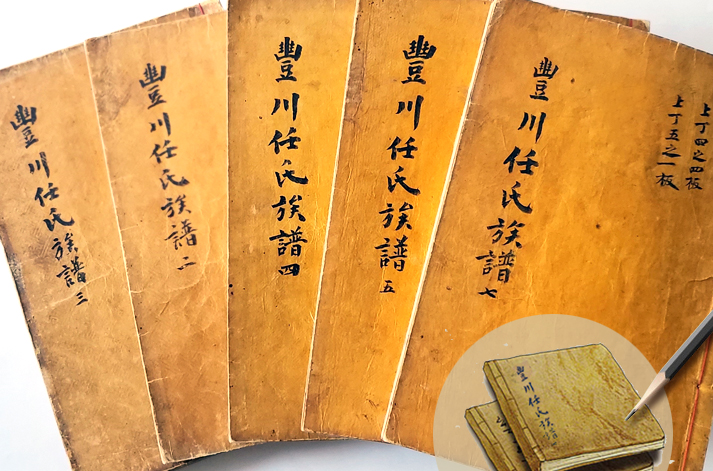 豐川任氏族譜 三
豐川任氏族譜 二
豐川任氏族譜 四
豐川任氏族譜 五
豐川任氏族譜 七
上丁四之四板
上丁五之一板
豐川任氏族譜